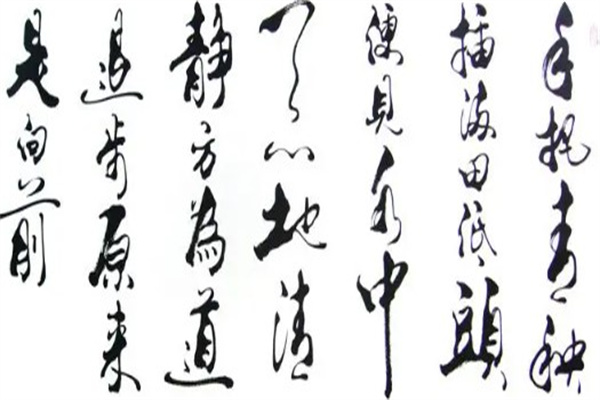 手把青秧
插滿田低頭
便見水中
天心地清
靜方為道
退步原來
是向前